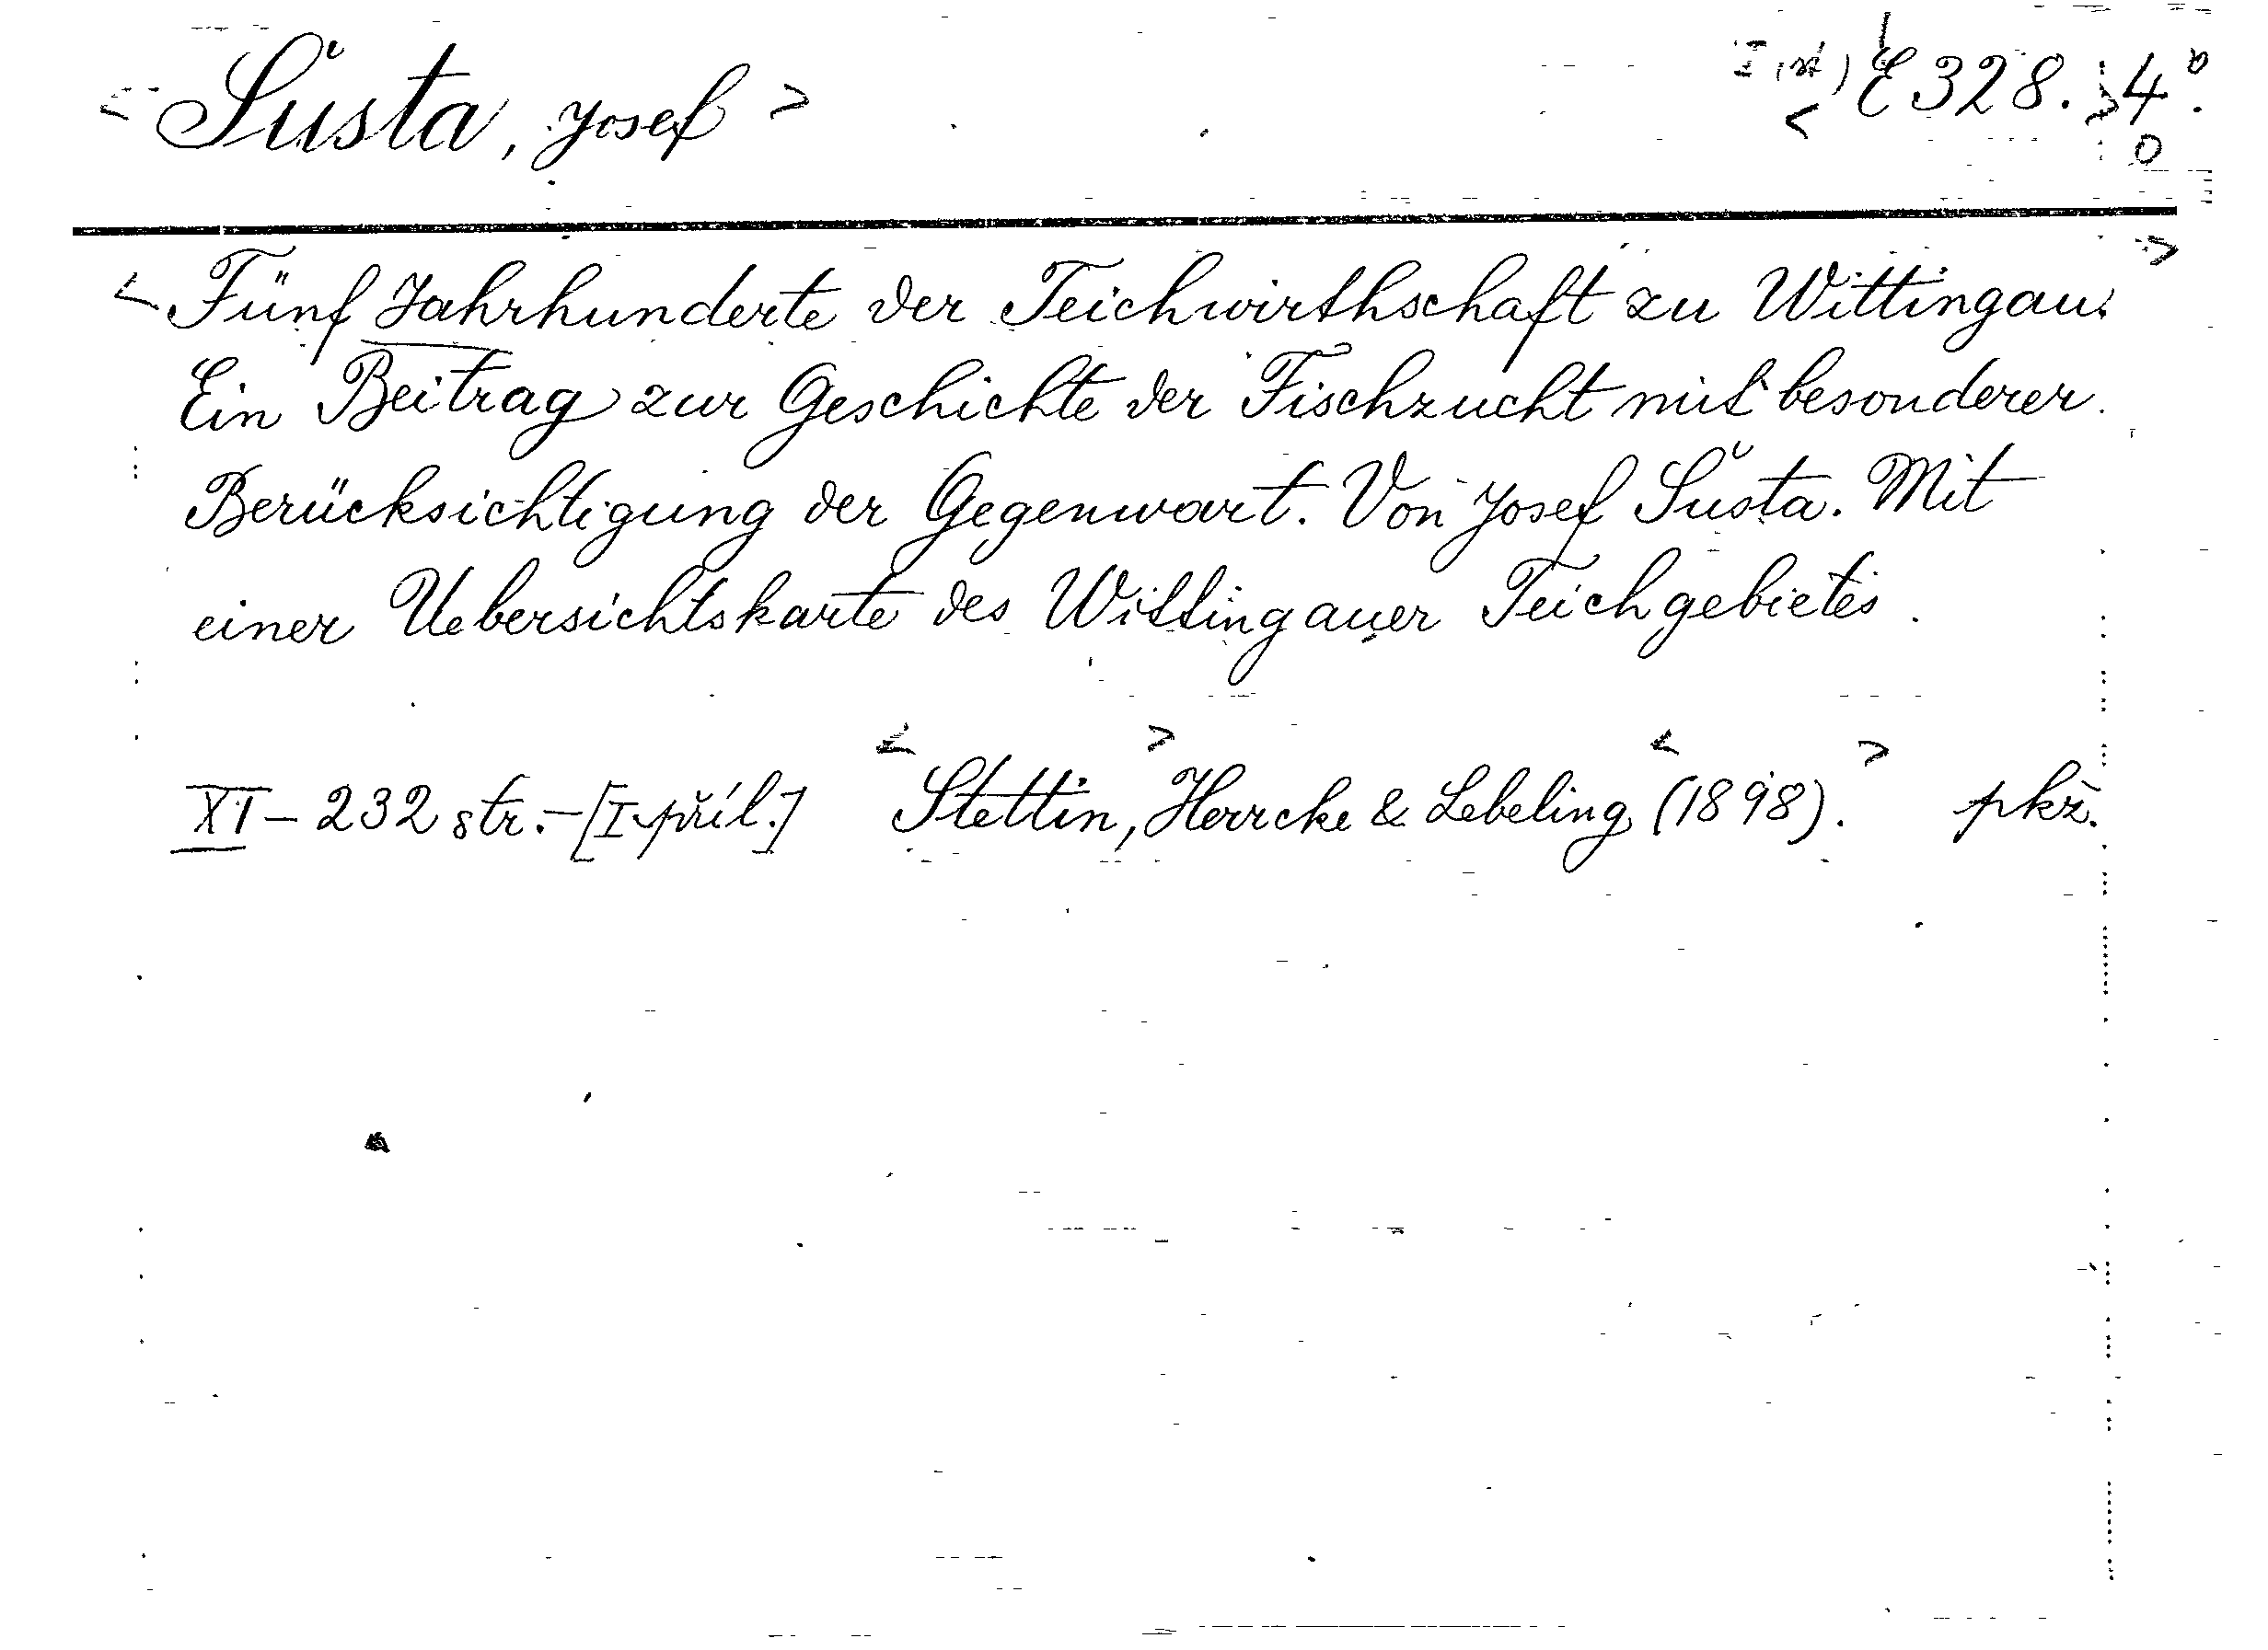 < Šusta, Josef > < E 328. > 4°.
< Fünf Jahrhunderte der Teichwirthschaft zu Wittingau. >
Ein Beitrag zur Geschichte der Fischzucht mit besonderer
Berücksichtigung der Gegenwart. Von Josef Šusta. Mit
einer Uebersichtskarte des Wittingauer Teichgebietes.
XI - 232 str. - [I příl.] < Stettin, > Herrcke & Lebeling < (1898). > pkž.